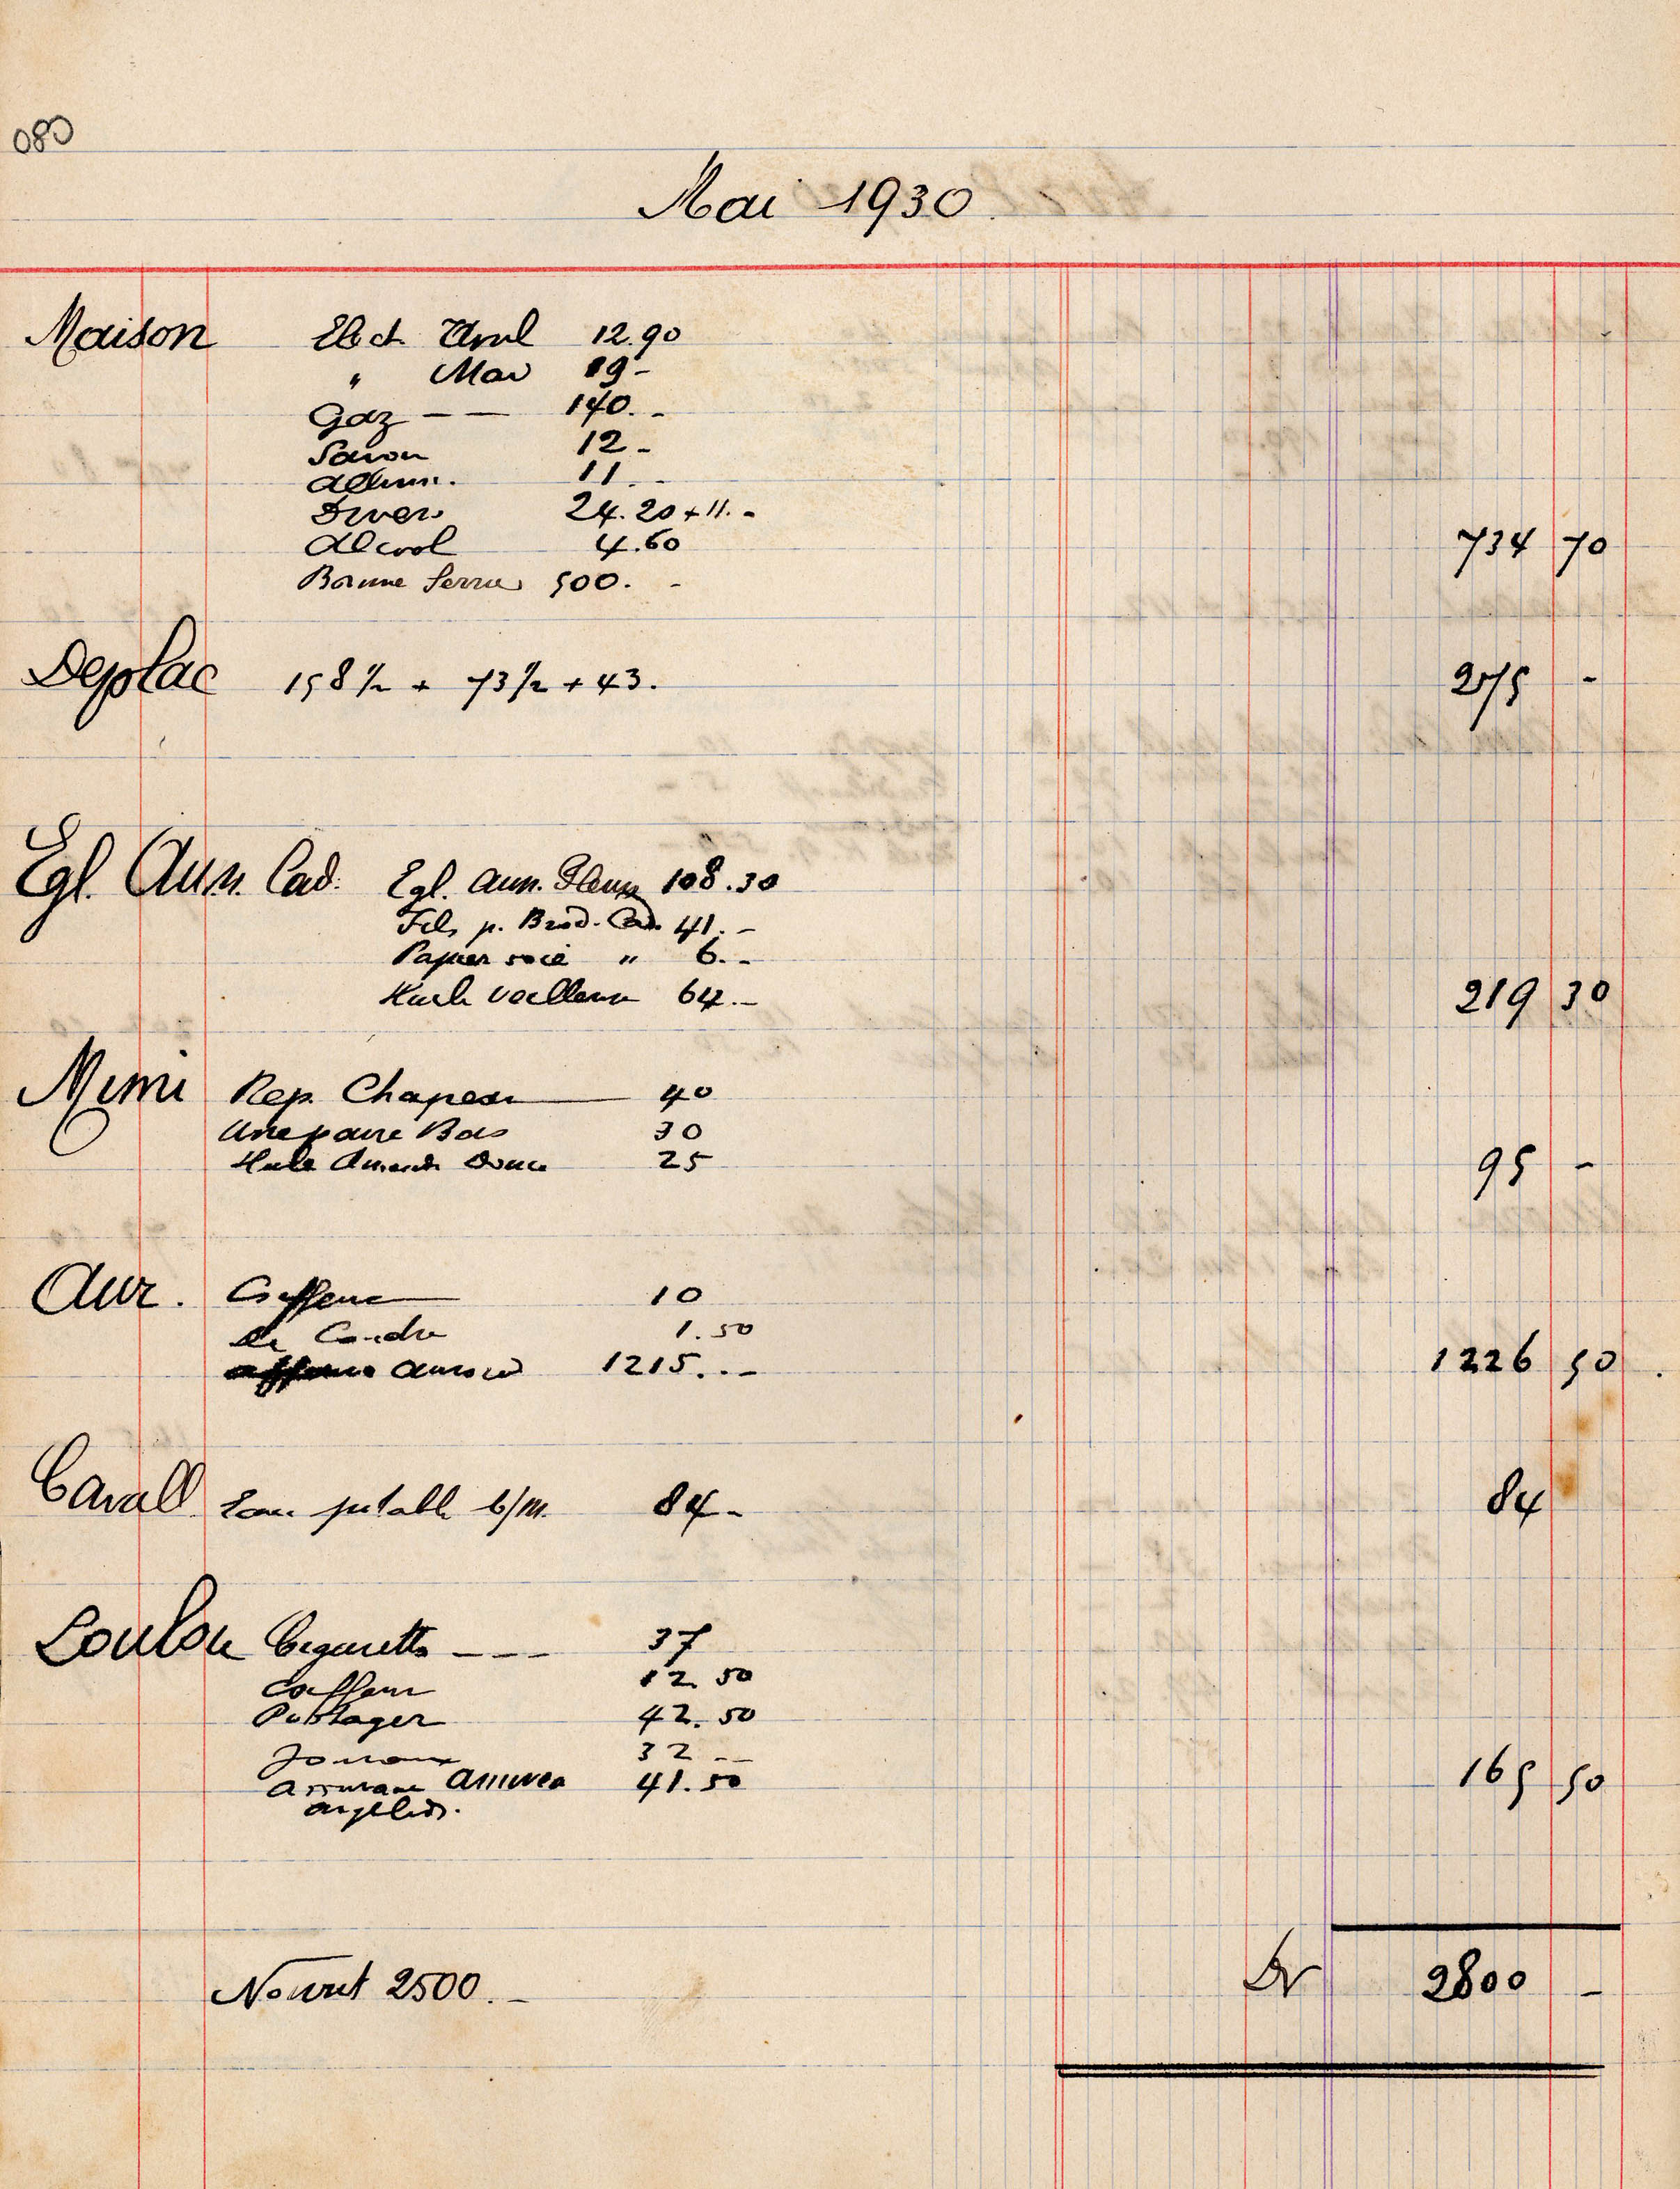 080
Mai 1930
Maison Elect. Avril 12.90
" Mai 19-
Gaz — — 140.-
Savon 12-
Allum. 11.-
Divers 24.20 + 11.-
Alcool 4.60 734 70
Bonne Serru 500.-
Deplac 158 1/2 + 73 1/2 + 43. 275 -
Egl. Ann. Cad. Egl. Ann. 108.30
Fils p. Brod. Cad. 41.-
Papier soie " 6.-
Huile veilleuse 64.- 219 30
Mimi Rep. Chapeau — 40
Une paire Bas 30
Huile Amande Douce 25 95 -
Aur. Coiffeur 10
1.50
1215.-- 1226 50
Cavall. Eau potable 6/m. 84- 84
Loulou Cigarettes --- 37
Coiffeur 12.50
Potager 42.50
Journaux 32 --
Assurance 41.50 165 50
Nourrit 2500.- Dr 2800 -